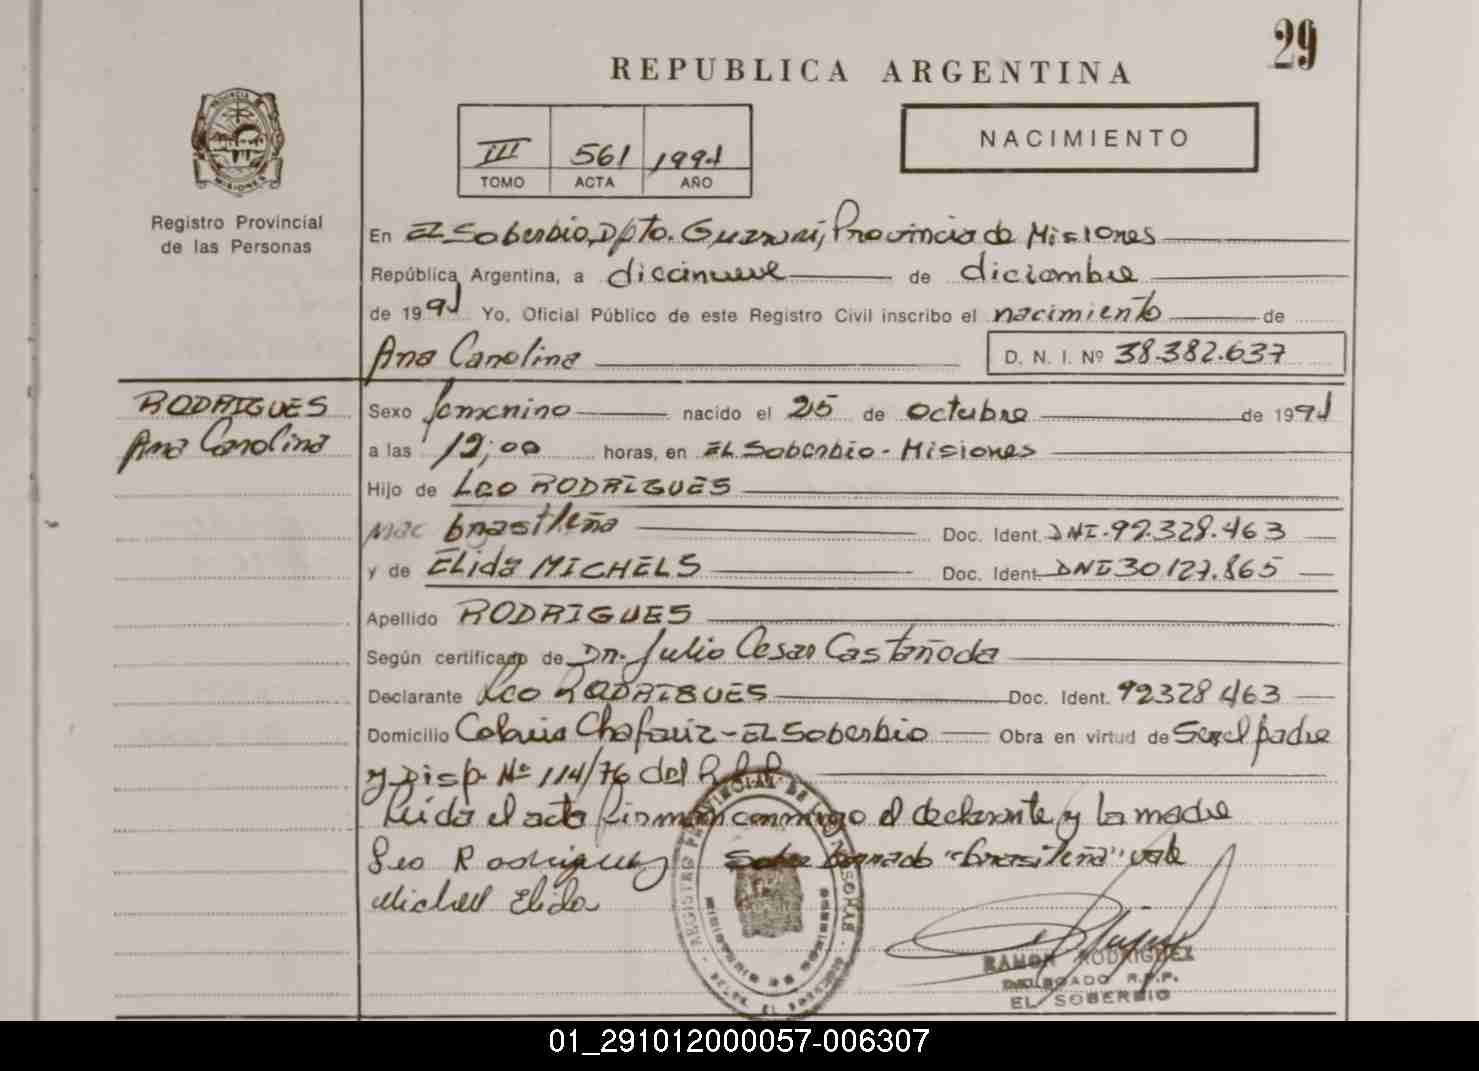 29
REPUBLICA ARGENTINA
NACIMIENTO
III 561 1991
TOMO ACTA AÑO
PROVINCIA DE MISIONES
Registro Provincial
de las Personas
En EL Soberbio, Dpto. Guaraní, Provincia de Misiones
República Argentina, a diecinueve de diciembre
de 1991 Yo, Oficial Público de este Registro Civil inscribo el nacimiento de
Ana Carolina D. N. I. Nº 38.382.637
RODRIGUES
Ana Carolina
Sexo femenino nacido el 25 de octubre de 1991
a las 12,00 horas, en EL Soberbio - Misiones
Hijo de Leo RODRIGUES
Nac brasileña Doc. Ident. DNI. 92.328.463
y de ELida MICHELS Doc. Ident. DNI 30127.865
Apellido RODRIGUES
Según certificado de Dr. Julio Cesar Castañoda
Declarante Leo RODRIGUES Doc. Ident. 92328463
Domicilio Colonia Chafariz - EL Soberbio Obra en virtud de Ser el padre
y Disp. Nº 114/76 del R.P.P.
Leída el acta firman conmigo el declarante y la madre
Leo Rodrigues Sobre borrado "brasileña" vale
Michels Elida
REGISTRO PROVINCIAL DE LAS PERSONAS
RAMON RODRIGUEZ
DELEGADO R.P.P.
EL SOBERBIO
01_291012000057-006307